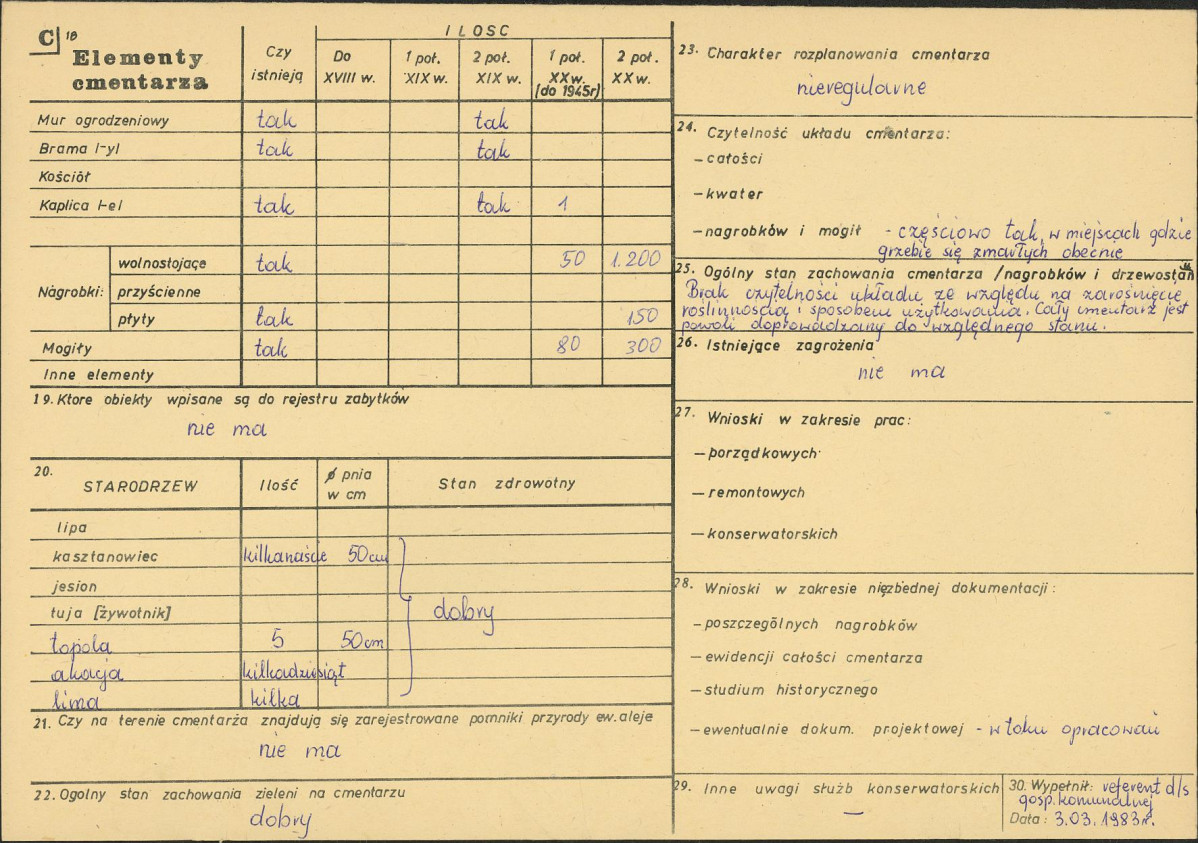 C 18
Elementy
cmentarza
Czy
istnieją
ILOSC
Do
XVIII w.
1 poł.
XIX w.
2 poł.
XIX w.
1 poł.
XX w.
(do 1945r)
2 poł.
XX w.
Mur ogrodzeniowy tak tak
Brama l-yl tak tak
Kościół
Kaplica l-el tak tak 1
Nagrobki:
wolnostojące tak 50 1.200
przyścienne
płyty tak 150
Mogiły tak 80 300
Inne elementy
19. Ktore obiekty wpisane są do rejestru zabytków
nie ma
20.
STARODRZEW Ilość ø pnia
w cm Stan zdrowotny
lipa
kasztanowiec kilkanaście 50cm
jesion
tuja [żywotnik] dobry
topola 5 50cm
akacja kilkadziesiąt
lima kilka
21. Czy na terenie cmentarza znajdują się zarejestrowane pomniki przyrody ew. aleje
nie ma
22. Ogolny stan zachowania zieleni na cmentarzu
dobry
23. Charakter rozplanowania cmentarza
nieregularne
24. Czytelność układu cmentarza:
- całości
- kwater
- nagrobków i mogił - częściowo tak, w miejscach gdzie
grzebie się zmarłych obecnie
25. Ogólny stan zachowania cmentarza /nagrobków i drzewostan
Brak czytelności układu ze względu na zarośnięcie
roślinnością i sposobem użytkowania. Cały cmentarz jest
powoli doprowadzany do względnego stanu.
26. Istniejące zagrożenia
nie ma
27. Wnioski w zakresie prac:
- porządkowych
- remontowych
- konserwatorskich
28. Wnioski w zakresie niezbednej dokumentacji:
- poszczególnych nagrobków
- ewidencji całości cmentarza
- studium historycznego
- ewentualnie dokum. projektowej - w toku opracowań
29. Inne uwagi służb konserwatorskich
—
30. Wypełnił: referent d/s
gosp. komunalnej
Data: 3.03.1983r.